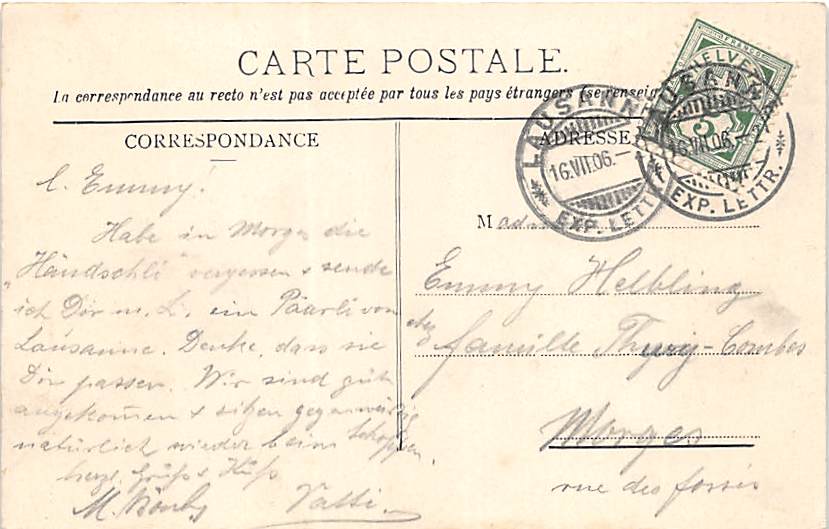 CARTE POSTALE.
La correspondance au recto n'est pas acceptée par tous les pays étrangers (se renseig
CORRESPONDANCE
ADRESSE
LAUSANNE
16.VII.06.–
EXP. LETTR.
LAUSANNE
16.VII.06.–
EXP. LETTR.
FRANCO
HELVE
5
l. Emmy!
Habe in Morges die
"Händschli" vergessen & sende
ich Dir m. L. ein Päärli von
Lausanne. Denke, dass sie
Dir passen. Wir sind gut
angekommen & sitzen gegenwärtig
natürlich wieder beim Schoppen.
herzl. Grüss & Küss
M. Vatti.
Mad
Emmy Helbling
chez famille Combes
Morges
rue des fossés